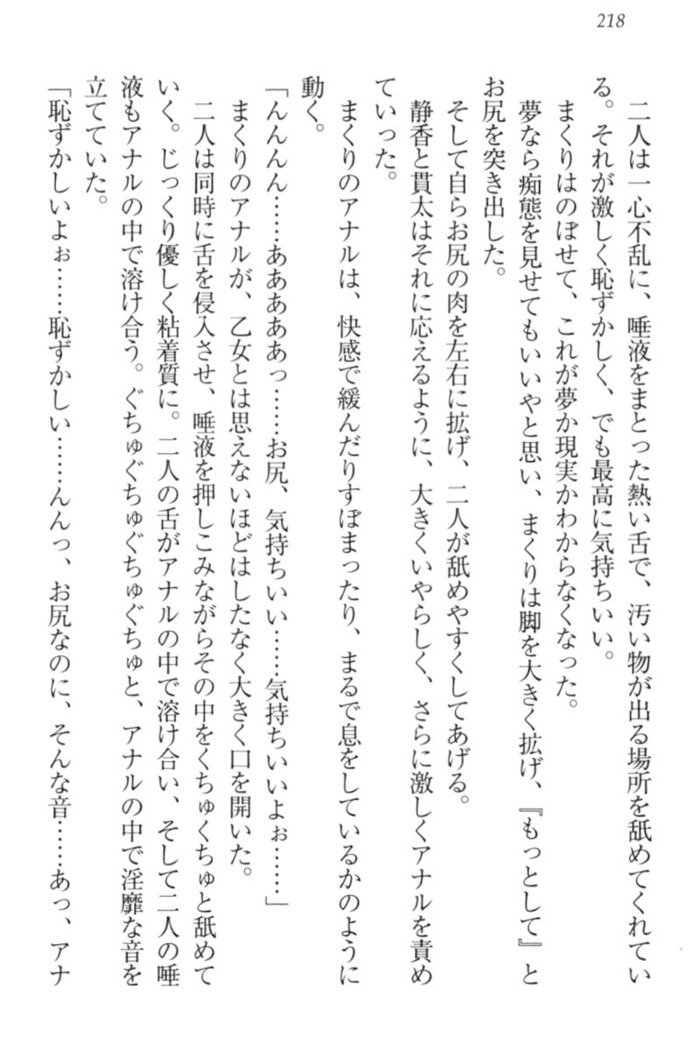 218
二人は一心不乱に、唾液をまとった熱い舌で、汚い物が出る場所を舐めてくれてい
る。それが激しく恥ずかしく、でも最高に気持ちいい。
まくりはのぼせて、これが夢か現実かわからなくなった。
夢なら痴態を見せてもいいやと思い、まくりは脚を大きく拡げ、『もっとして』と
お尻を突き出した。
そして自らお尻の肉を左右に拡げ、二人が舐めやすくしてあげる。
静香と貫太はそれに応えるように、大きくいやらしく、さらに激しくアナルを責め
ていった。
まくりのアナルは、快感で緩んだりすぼまったり、まるで息をしているかのように
動く。
「んんんん……あああああっ……お尻、気持ちいい……気持ちいいよぉ……」
まくりのアナルが、乙女とは思えないほどはしたなく大きく口を開いた。
二人は同時に舌を侵入させ、唾液を押しこみながらその中をくちゅくちゅと舐めて
いく。じっくり優しく粘着質に。二人の舌がアナルの中で溶け合い、そして二人の唾
液もアナルの中で溶け合う。ぐちゅぐちゅぐちゅぐちゅと、アナルの中で淫靡な音を
立てていた。
「恥ずかしいよぉ……恥ずかしい……んんっ、お尻なのに、そんな音……あっ、アナ